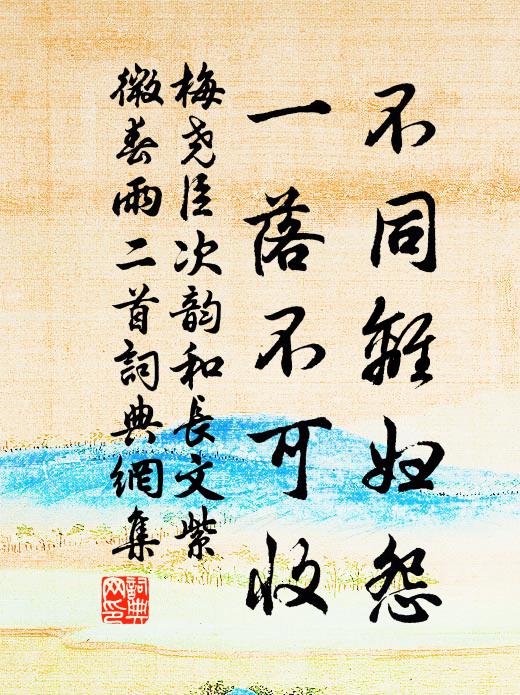 不同離妇怨
一落不可收
梅尧臣次韵和長文紫
微春雨二首詞典網集
詞典
网印